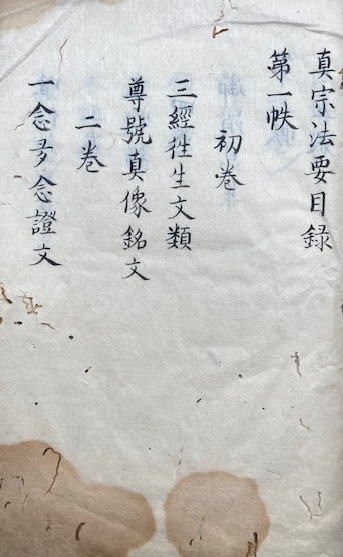 真宗法要目録
第一帙
初巻
三經徃生文類
尊號真像銘文
二巻
一念多念證文